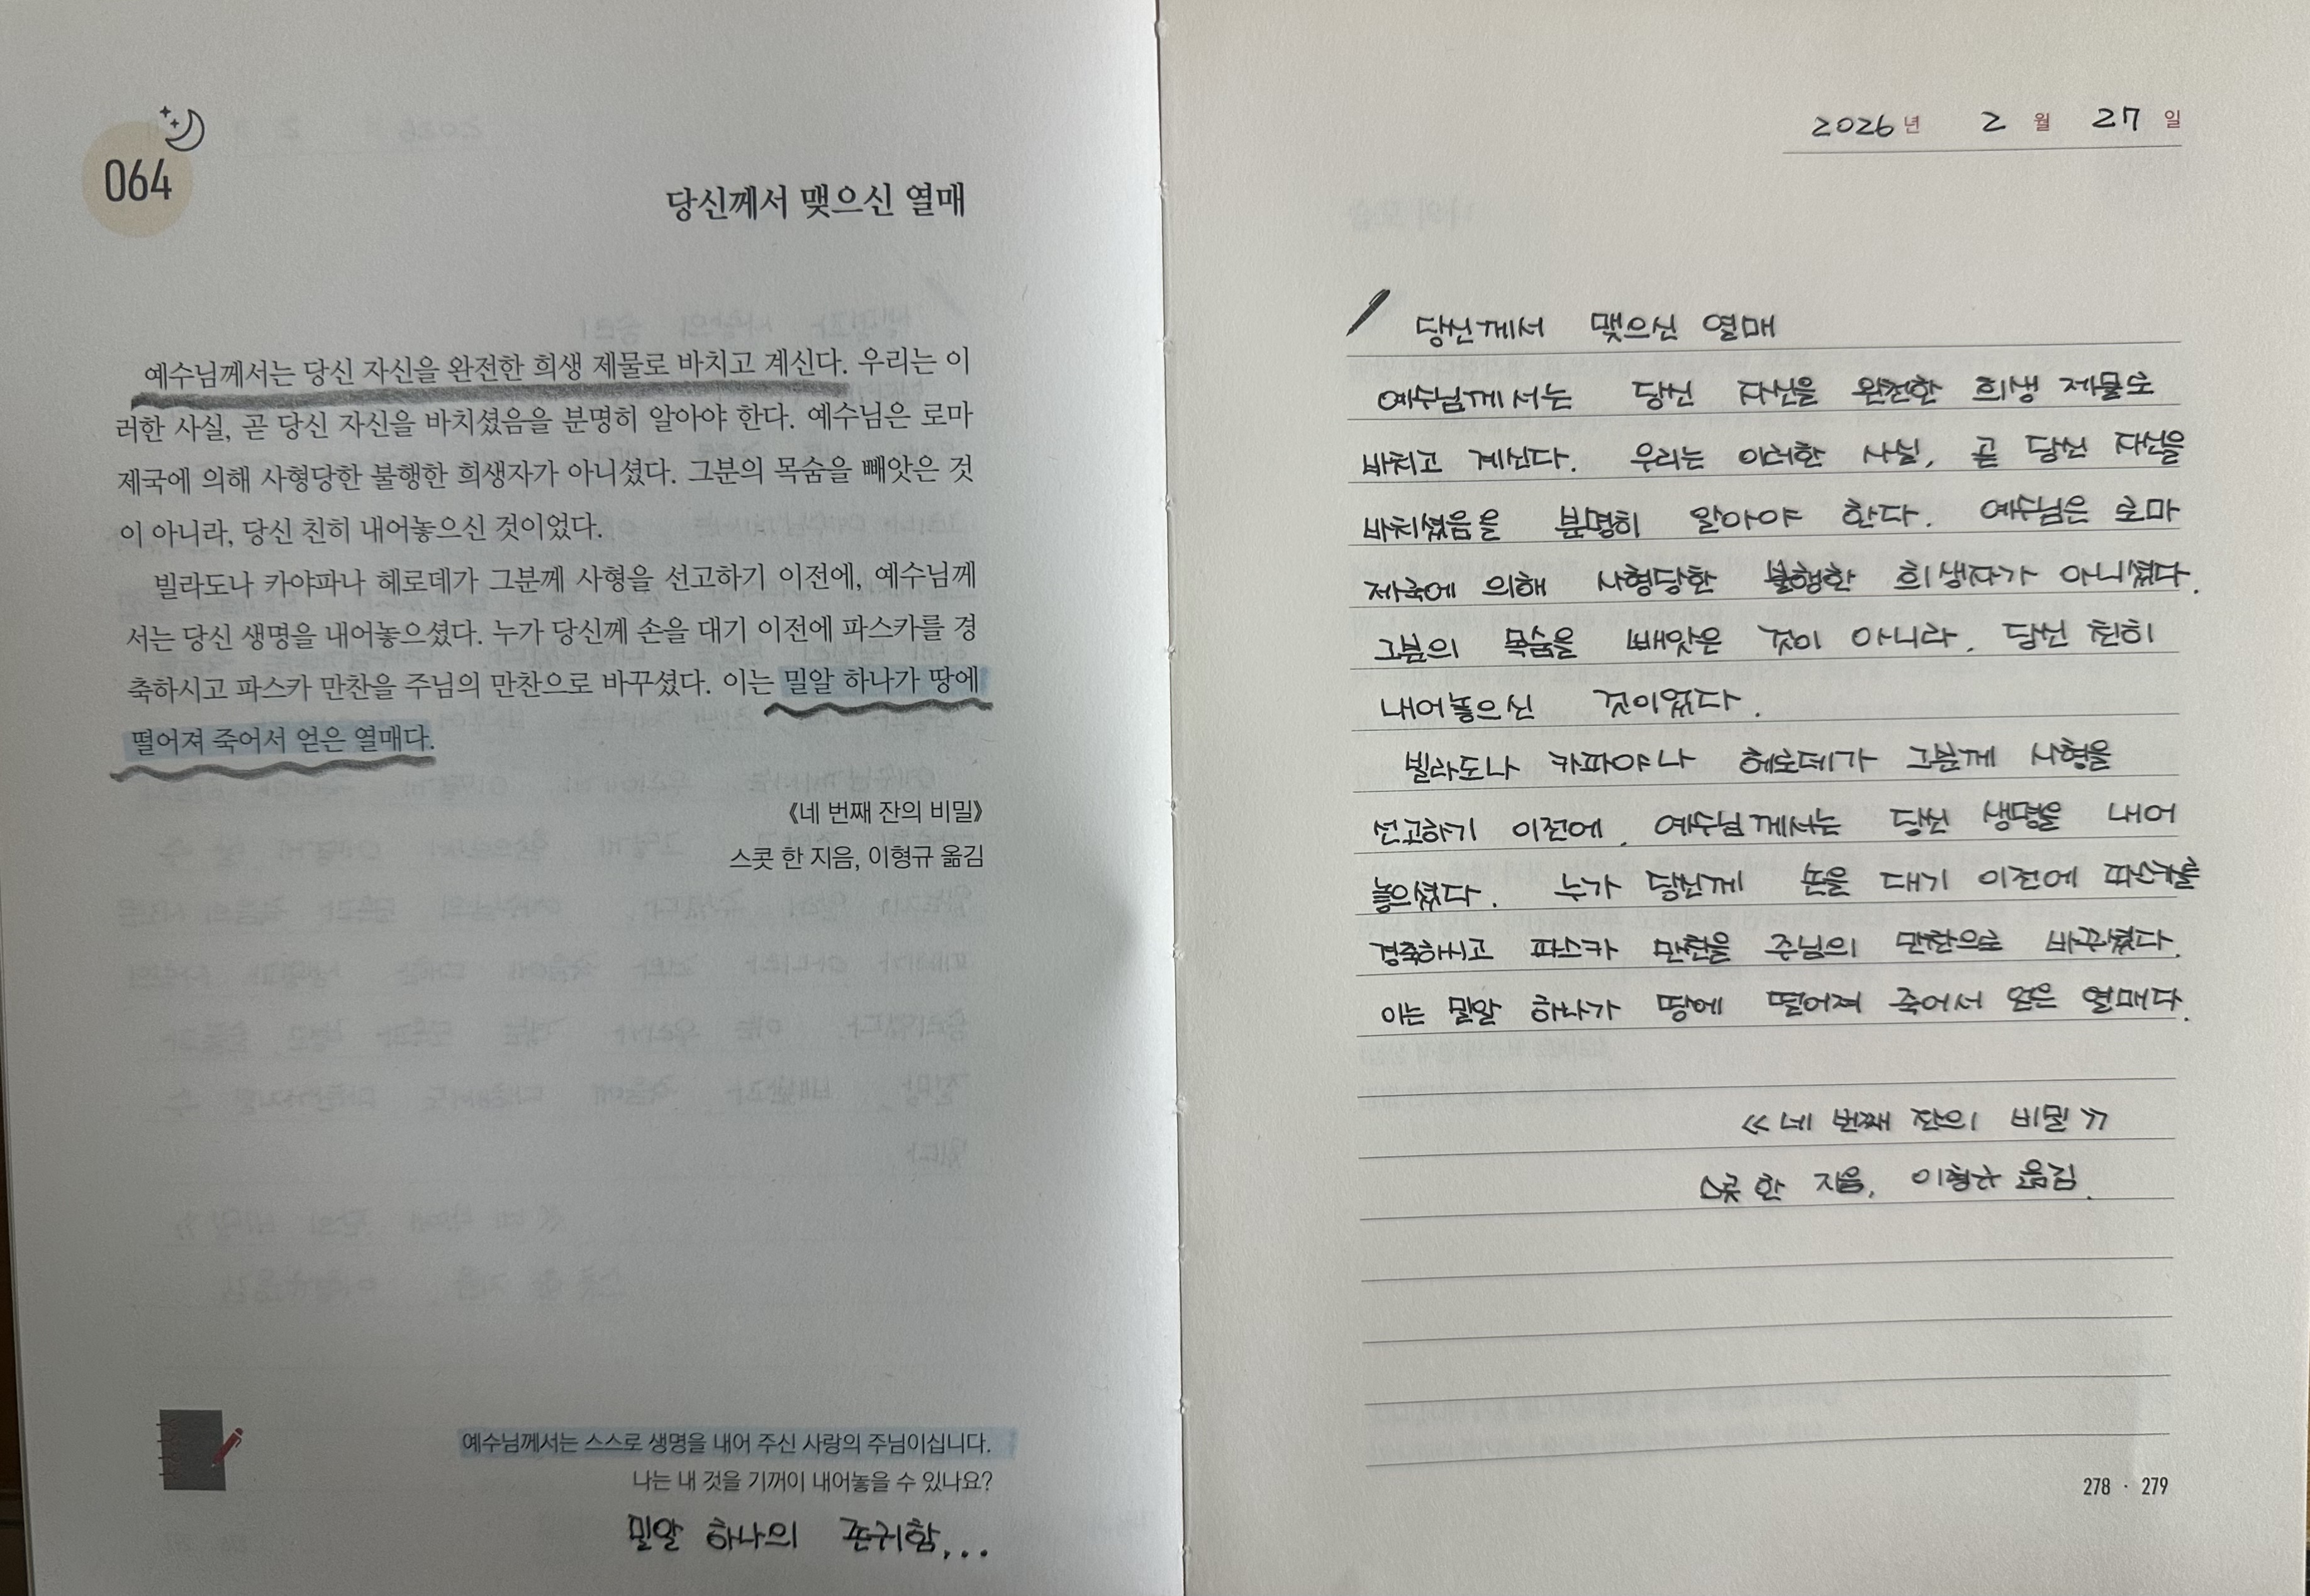 064
당신께서 맺으신 열매
예수님께서는 당신 자신을 완전한 희생 제물로 바치고 계신다. 우리는 이
러한 사실, 곧 당신 자신을 바치셨음을 분명히 알아야 한다. 예수님은 로마
제국에 의해 사형당한 불행한 희생자가 아니셨다. 그분의 목숨을 빼앗은 것
이 아니라, 당신 친히 내어놓으신 것이었다.
빌라도나 카야파나 헤로데가 그분께 사형을 선고하기 이전에, 예수님께
서는 당신 생명을 내어놓으셨다. 누가 당신께 손을 대기 이전에 파스카를 경
축하시고 파스카 만찬을 주님의 만찬으로 바꾸셨다. 이는 밀알 하나가 땅에
떨어져 죽어서 얻은 열매다.
《네 번째 잔의 비밀》
스콧 한 지음, 이형규 옮김
예수님께서는 스스로 생명을 내어 주신 사랑의 주님이십니다.
나는 내 것을 기꺼이 내어놓을 수 있나요?
밀알 하나의 존귀함...
2026년 2월 27일
당신께서 맺으신 열매
예수님께서는 당신 자신을 완전한 희생 제물로
바치고 계신다. 우리는 이러한 사실, 곧 당신 자신을
바치셨음을 분명히 알아야 한다. 예수님은 로마
제국에 의해 사형당한 불행한 희생자가 아니셨다.
그분의 목숨을 빼앗은 것이 아니라, 당신 친히
내어놓으신 것이었다.
빌라도나 카파야나 헤로데가 그분께 사형을
선고하기 이전에, 예수님께서는 당신 생명을 내어
놓으셨다. 누가 당신께 손을 대기 이전에 파스카를
경축하시고 파스카 만찬을 주님의 만찬으로 바꾸셨다.
이는 밀알 하나가 땅에 떨어져 죽어서 얻은 열매다.
《네 번째 잔의 비밀》
스콧 한 지음, 이형규 옮김.
278 · 279